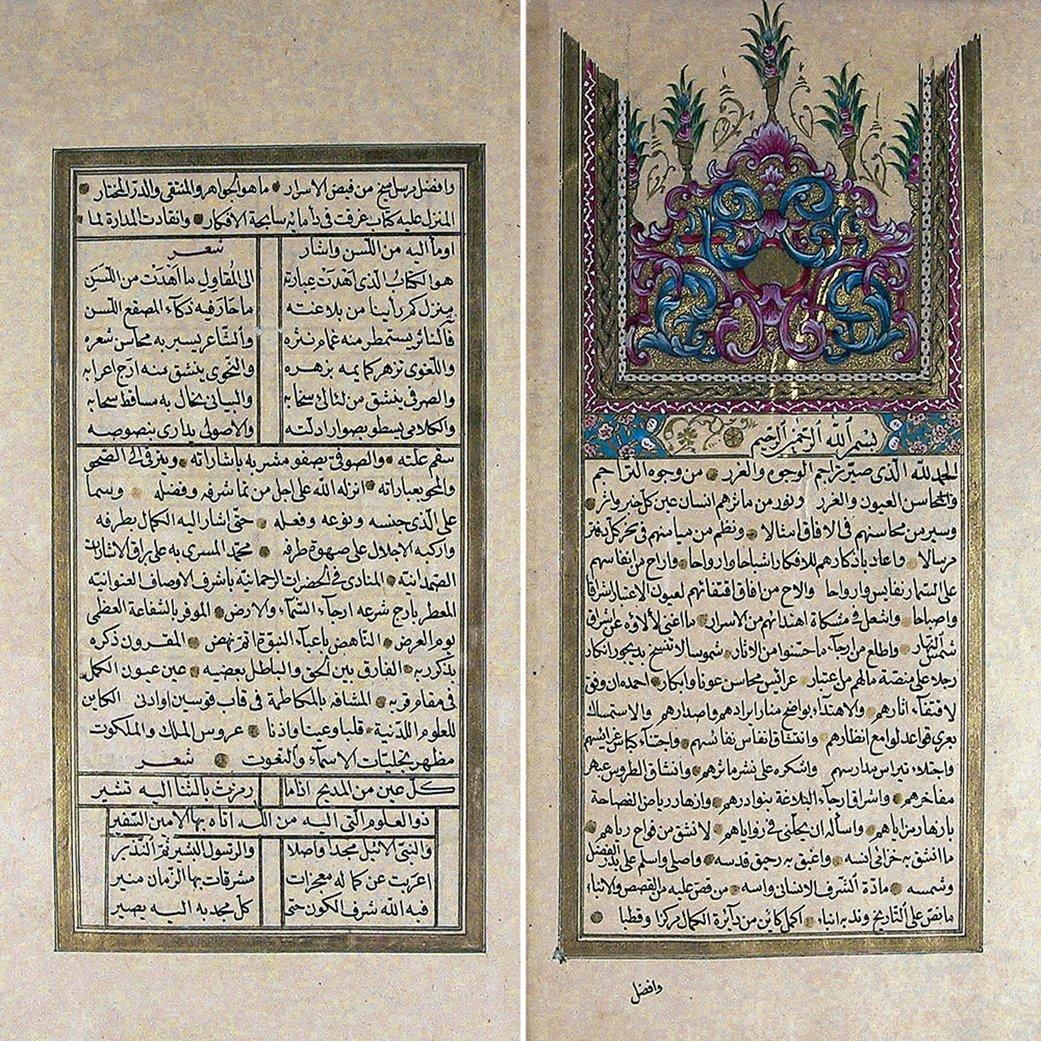 بسم الله الرحمن الرحيم
الحمد لله الذى صير تراجم الوجوه والغرر من وجوه التراجم
والمحاسن العيون والغرر ونور من ماثرهم انسان عين كل خبر واثر
وسير من محاسنهم فى الافاق امثالا ونظم من مياسنهم فى نحر كل
وعاد باذكارهم للافكار اشباحا وارواحا وازاح من انفاسهم
على السمار نفايس وارواحا والاح من افاق اقتفائهم لعيون الاعتبار اشراقا
واصباحا واشعل فى مشكاة اهتدائهم من الاسرار ما اغنى لألاؤه عن اشراق
شمس النهار واطلع من ارجآء ما حسنوا من الاثار شموسا لا تنسخ بديجور انكار
وجلا على منصة مالهم من اعتبار عرائس محاسن عونا وابكار احمده ان وفق
لاقتفآء اثارهم والاهتداء بواضح منار ايرادهم واصدارهم والاستمساك
بعرى قواعد لوامع انظارهم وانتشاق انفاس نفائسهم واجتناء غرائسهم
واجتلاء نبراس مدارسهم واشكره على نشر ماثرهم وانتشاق الطروس عبهر
مفاخرهم واشراق ارجآء البلاغة بنوادرهم وازهار رياض الفصاحة
بازهار مزاياهم واسأله ان يحلنى فى زواياهم لانشق من فواح رياهم
ما انشق به خزائى انسه واغبق به رحيق قدسه واصلى واسلم على بدر الفضل
وشمسه مادة الشرف الانسانى واسه من قص عليه من القصص والانباء
ما نص على التاريخ وندبه انباء اكمل كاين من دآيرة الكمال مركزا وقطبا
وافضل
وافضل من فيض الاسرار ما هو الجواهر والمنتقى والدر المختار
المنزل عليه كتاب غرقت فى دأمائه سابحة الافكار وانقادت المدارة لما
اومأ اليه من اللسن واشار شعر
هو الكتاب الذى اهدت عبارته الى المقاول ما اهدت من اللسن
منزل كم رأينا من بلاغته ما حار فيه ذكآء المصقع اللسن
فالناثر يستمطر منه غمام نثره والشاعر يسير به محاسن شعره
واللغوى تزهر كمايمه بزهره والنحوى ينتشق منه ارج اعرابه
والصرفى ينتشق من لئالى سحابه والبيانى يختال به مساقط سحابه
والكلامى يسطو بصوار ادلته والاصولى يداوى بنصوصه
سقم علته والصوفى يصفو مشربه باشاراته ويترقى الى الصحو
والمحو بعباراته انزله الله على اجل من نما شرفه وفضله وسما
على الذى جنسه ونوعه وفعله حتى اشار اليه الكمال بطرفه
واركبه الاجلال على صهوة طرفه محمد المسرى به على براق الاشارات
الصمدانية المنادى فى الحضرات الرحمانية باشرف الاوصاف العنوانية
المعطر بارج شرعه ارجآء السمآء والارض الموفر بالشفاعة العظمى
يوم العرض الناهض باعبآء النبوة اتم نهض المقرون ذكره
بذكر ربه الفارق بين الحق والباطل بعضبه عين عيون الكمل
فى مقام قربه المشافه بالمكالمة فى قاب قوسين او ادنى الكاين
للعلوم اللدنية قلبا وعينا واذنا عروس الملك والملكوت
مظهر تجليات الاسمآء والنعوت شعر
كل عين من المديح اتاما رمزت بالثنا اليه تشير
ذو العلوم التى اليه من الله اتاه بها الامين السفير
والنبى الاثيل مجدا واصلا والرسول البشير ثم النذير
اعربت عن كماله معجزات مشرقات بها الزمان منير
فيه الله شرف الكون حتى كل مجد به اليه يصير